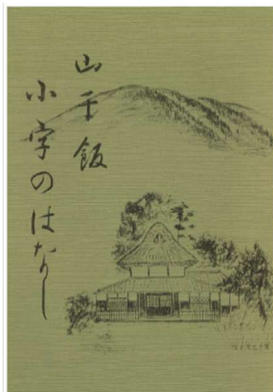 山干飯
小字のはなし